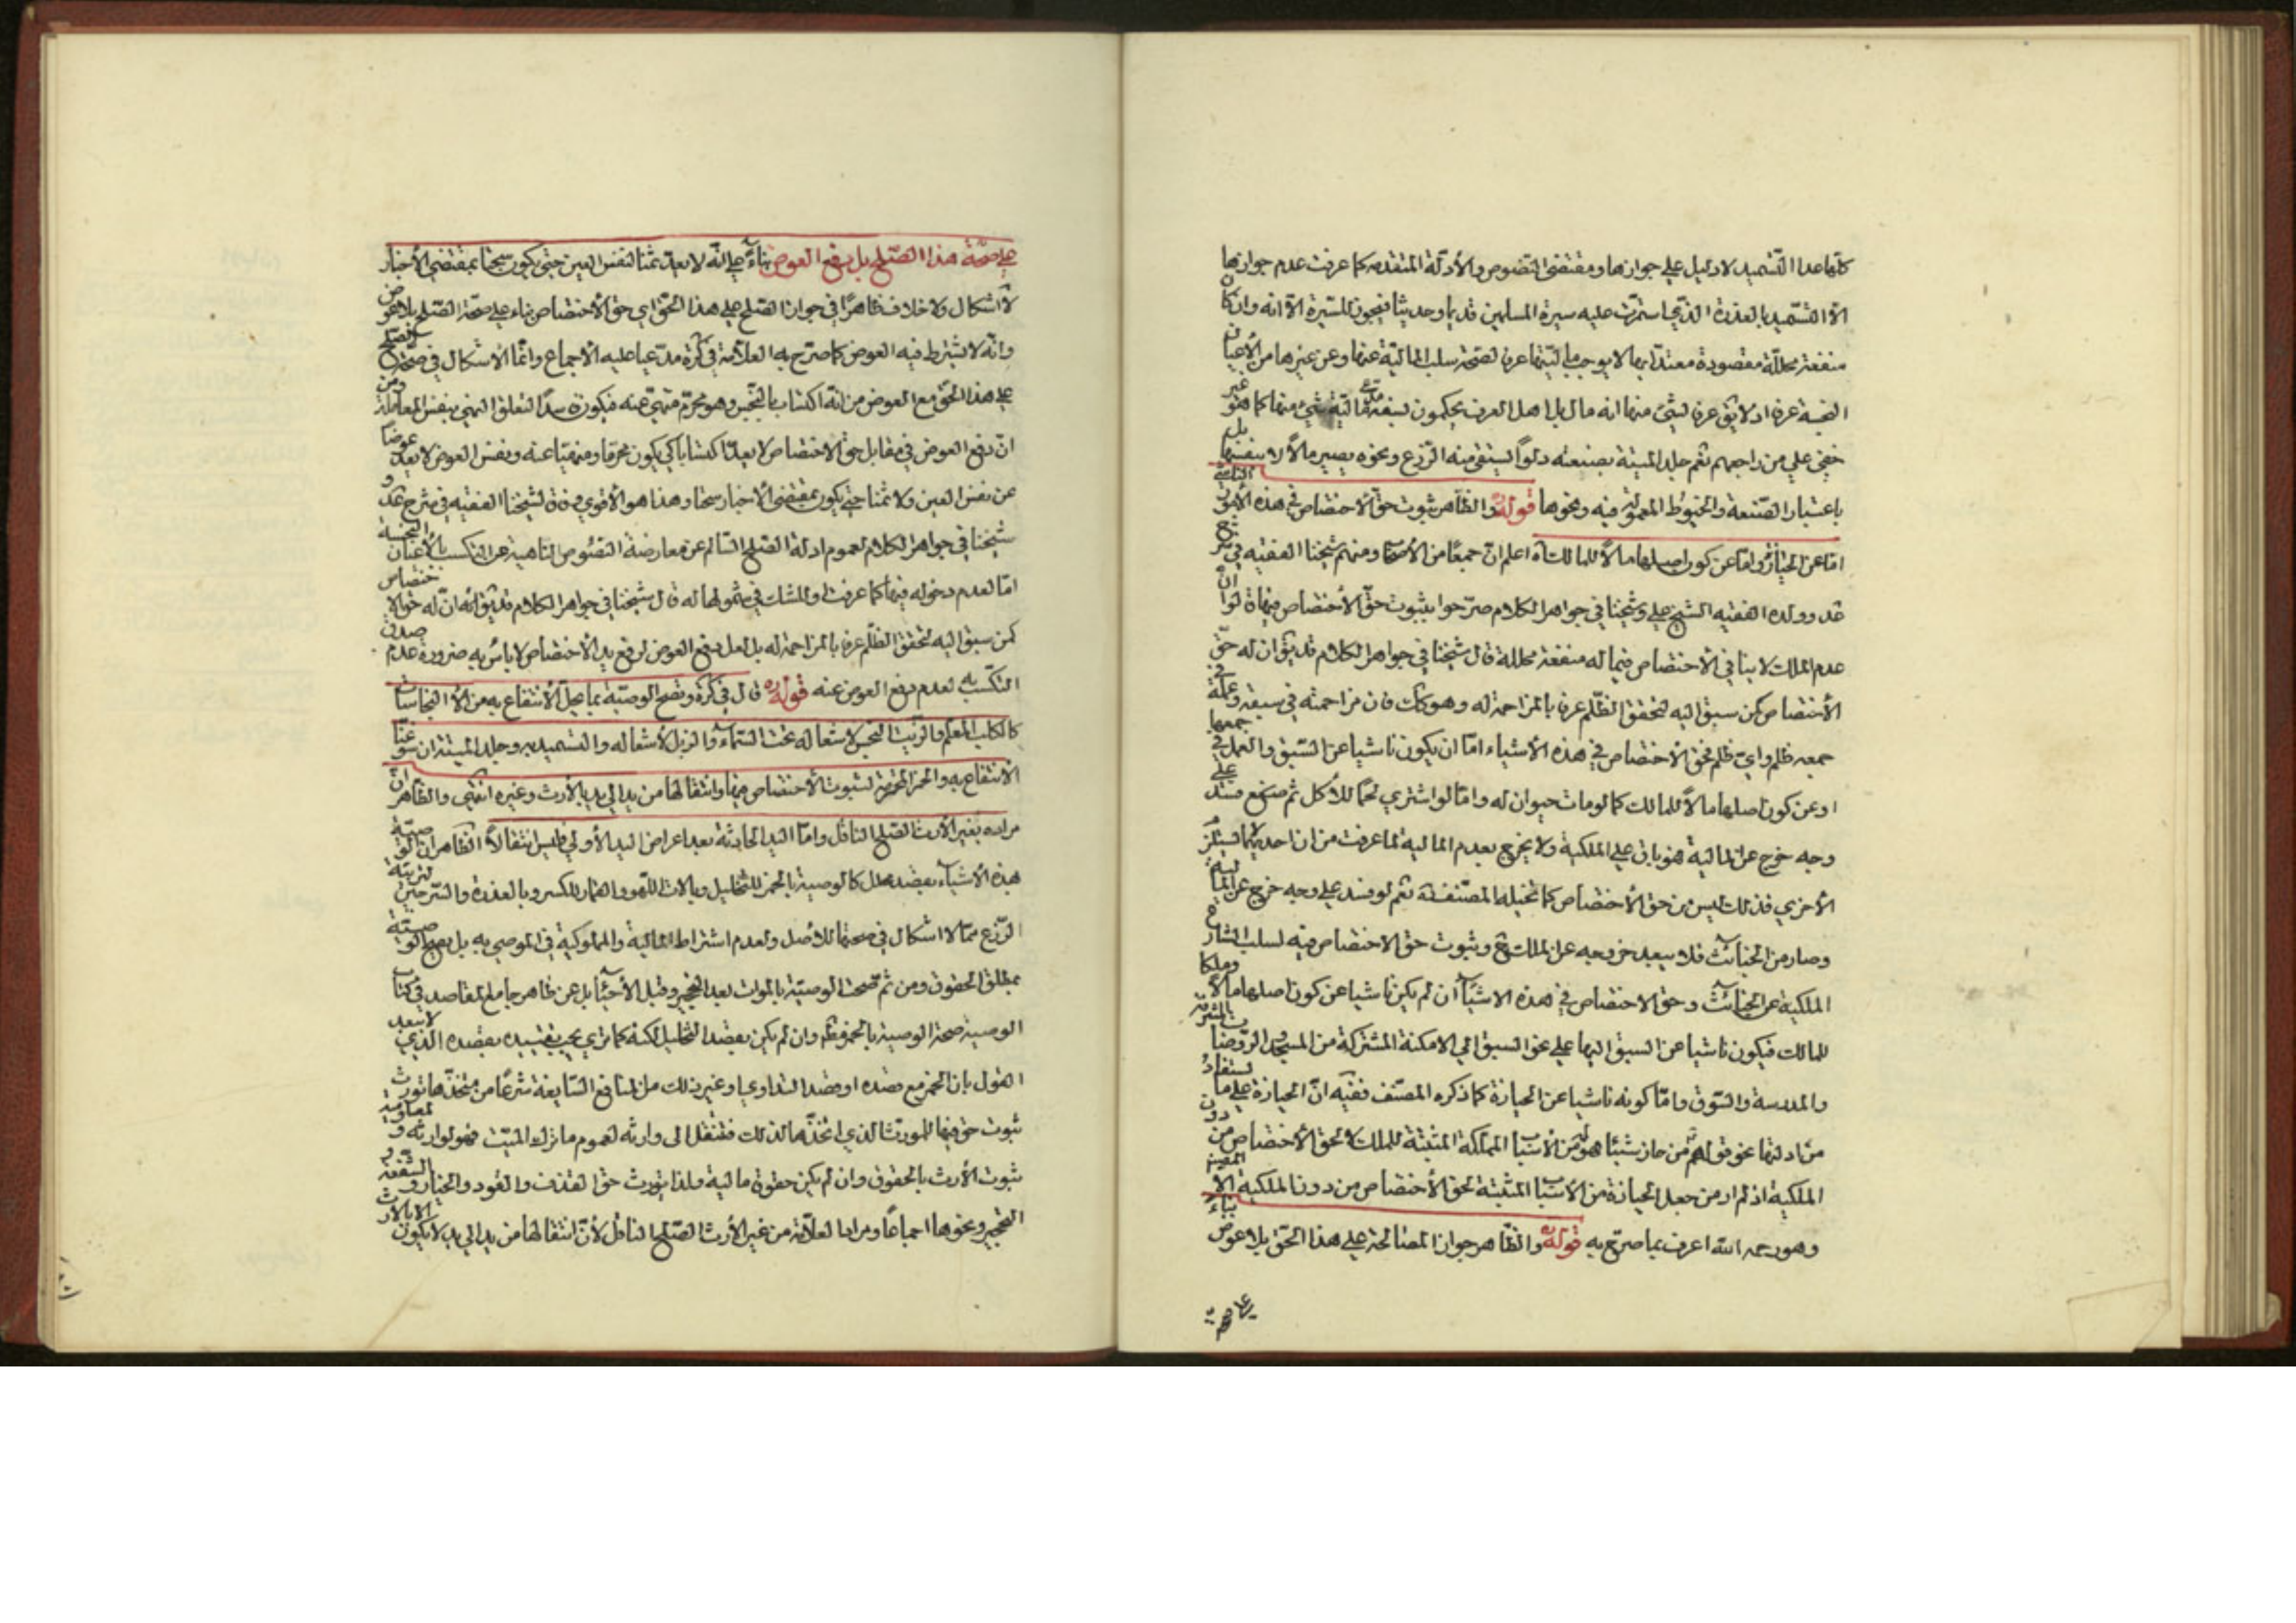 كلها عدا التسميد لا دليل على جوازها ومقتضى النصوص والأدلة المتقدمه كما عرفت عدم جوازها
الا التسميد بالعذرة الذي استمرت عليه سيرة المسلمين قديما وحديثا فيجوز للسيرة الا انه وان كان
منفعة محللة مقصودة معتدا بها لا يوجب ماليتها عرفا لصحة سلب المالية عنها وعن غيرها من الأعيان
النجسة عرفا اذ لا يق عرفا لشئ منها انه مال بل اهل العرف يحكمون بسفه مدعي مالية شئ منها كما هو غير
خفي على من راجعهم نعم جلد الميتة بصنعه دلوا ليستقى منه الزرع ونحوه يصير مالا لا بنفسها بل
باعتبار الصنعة والخيوط المعمولة فيه ونحوها قوله والظاهر ثبوت حق الأختصاص في هذه الأمور الناشئ
اما عن الحيازة واما عن كون اصلها مالا للمالك آه اعلم ان جمعا من الأصحا ومنهم شيخنا الفقيه في شرح
عد وولده الفقيه الشيخ علي وشيخنا في جواهر الكلام صرحوا بثبوت حق الأختصاص فيها ة لوا ان
عدم الملك لا ينافي الأختصاص فيما له منفعة محللة قال شيخنا في جواهر الكلام قد يق ان له حق
الأختصاص كمن سبق اليه لتحقق الظلم عرفا بالمزاحمة له وهو كك فان مزاحمته في سبقه وعمله في
جمعه ظلم واي ظلم فحق الأختصاص في هذه الأشياء اما ان يكون ناشيا عن السبق والعمل في جمعها
او عن كون اصلها مالا للمالك كما لو مات حيوان له واما لو اشترى لحما للأكل ثم ففسد على
وجه خرج عن المالية فهو باق على الملكية ولا يخرج بعدم المالية لما عرفت من ان احديهما لا يستلزم
الأخرى فذلك ليس من حق الأختصاص كما تخيله المصنف نعم لو فسد على وجه خرج عن المالية
وصار من الخبائث فلا يبعد خروجه عن الملك وثبوت حق الاختصاص فيه لسلب الشارع
الملكية عن الخبائث وحق الاختصاص في هذه الاشياء ان لم يكن ناشيا عن كون اصلها مالا وملكا
للمالك فيكون ناشيا عن السبق اليها على نحو السبق الى الامكنة المشتركة من المسجد والروضات المشرفة
والمدرسة والسوق واما كونه ناشيا عن الحيازة كما ذكره المصنف ففيه ان الحيازة على ما يستفاد
من ادلتها نحو قولهم من حاز شيئا فهو له من الأسباب المملكة المثبتة للملك لا لحق الأختصاص من دون
الملكية اذ لم ار من جعل الحيازة من الأسباب المثبتة لحق الأختصاص من دون الملكية الا المص
وهو رحمه الله اعرف بما صرح به قوله والظاهر جواز المصالحة على هذا الحق بلا عوض بناء
على صحه
على صحة هذا الصلح بل دفع العوض بناء على انه لا يعد ثمنا لنفس العين حتى يكون سحتا بمقتضى الأخبار
لا اشكال ولا خلاف ظاهرا في جواز الصلح على هذا الحق اي حق الأختصاص بناء على صحة الصلح بلا عوض
وانه لا يشترط فيه العوض كما صرح به العلامة في كرة مدعيا عليه الأجماع وانما الأشكال في صحة الصلح
على هذا الحق مع العوض من انه اكتساب بالنجس وهو محرم منهي عنه فيكون سدا لتعلق النهي بنفس المعاملة ومن
ان دفع العوض في مقابل حق الاختصاص لا يعد اكتسابا كي يكون محرما ومنهيا عنه ونفس العوض لا يعد عوضا
عن نفس العين ولا ثمنا حتى يكون بمقتضى الأخبار سحتا وهذا هو الأقوى وفاقا لشيخنا الفقيه في شرح عد و
شيخنا في جواهر الكلام لعموم ادلة الصلح السالم عن معارضة النصوص الناهية عن التكسب بالأعيان النجسة
اما لعدم دخوله فيها كما عرفت او للشك في شمولها له قال شيخنا في جواهر الكلام قد يق انه ان له حق الاختصاص
كمن سبق اليه لتحقق الظلم عرفا بالمزاحمة له بل لعل دفع العوض لرفع يد الأختصاص لا بأس به ضرورة عدم صدق
التكسب به لعدم دفع العوض عنه قوله قال في كرة وتصح الوصية بما يحل الأنتفاع به من النجاسات
كالكلب المعلم والزيت النجس لاشعاله تحت السماء والزبل لأشعاله والتسميد به وجلد الميتة ان سوغنا
الانتفاع به والخمر المحترمة لثبوت الأختصاص فيها وانتقالها من يد الى يد بالأرث وغيره انتهى والظاهر ان
مراده بغير الأرث الصلح الناقل واما اليد الحادثة بعد اعراض اليد الأولى فليس انتقالا الظاهر ان الوصية
هذه الأشياء بقصد محلل كالوصية بالخمر للتخليل وبالات اللهو والقمار للكسر وبالعذرة والسرجين لتربية
الزرع مما لا اشكال في صحتها للأصل ولعدم اشتراط المالية والمملوكية في الموصى به بل يصح الوصية
بمطلق الحقوق ومن ثم صحت الوصية بالموات بعد التحجير وقبل الأحياء بل عن ظاهر جامع المقاصد في كتاب
الوصية صحة الوصية بالخمر وان لم يكن بقصد التخليل لكنه كما ترى يجب تقييده بقصده الذي لا يبعد
القول بان الخمر مع قصده او قصد التداوي او غير ذلك من المنافع السايغة شرعا من متخذها تورث
ثبوت حق فيها للمورث الذي اتخذها لذلك فتنتقل الى وارثه لعموم ما ترك الميت فهو لوارثه و
ثبوت الأرث بالحقوق وان لم يكن حقوق مالية ولذا يورث حق القذف والقود والخيار والشفعة و
التحجير ونحوها اجماعا ومراد العلامة من غير الأرث الصلح الناقل لأن انتقالها من يد الى يد لا يكون الا بالارث